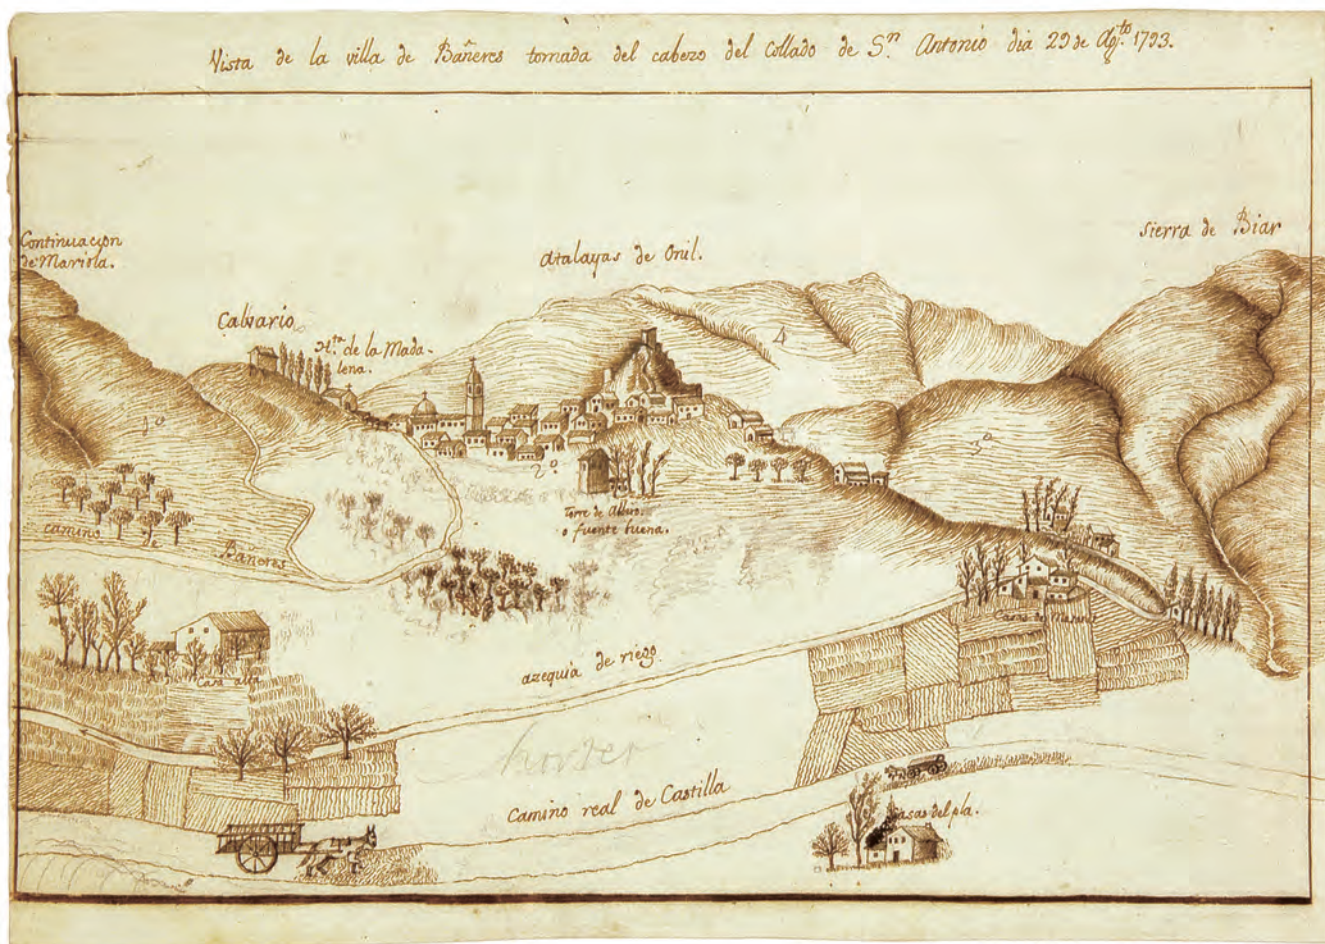 Vista de la villa de Bañeres tomada del cabezo del Collado de S.n Antonio dia 29 de Ag.to 1793.
Continuacion
de Mariola.
Calvario
H.ta de la Mada-
lena.
Atalayas de Onil.
Sierra de Biar
1º
2º
3º
4
Torre de
o fuente buena.
camino de Bañeres
Casa alta
azequia de riego.
Casas de
horter
Camino real de Castilla
Casas del pla.